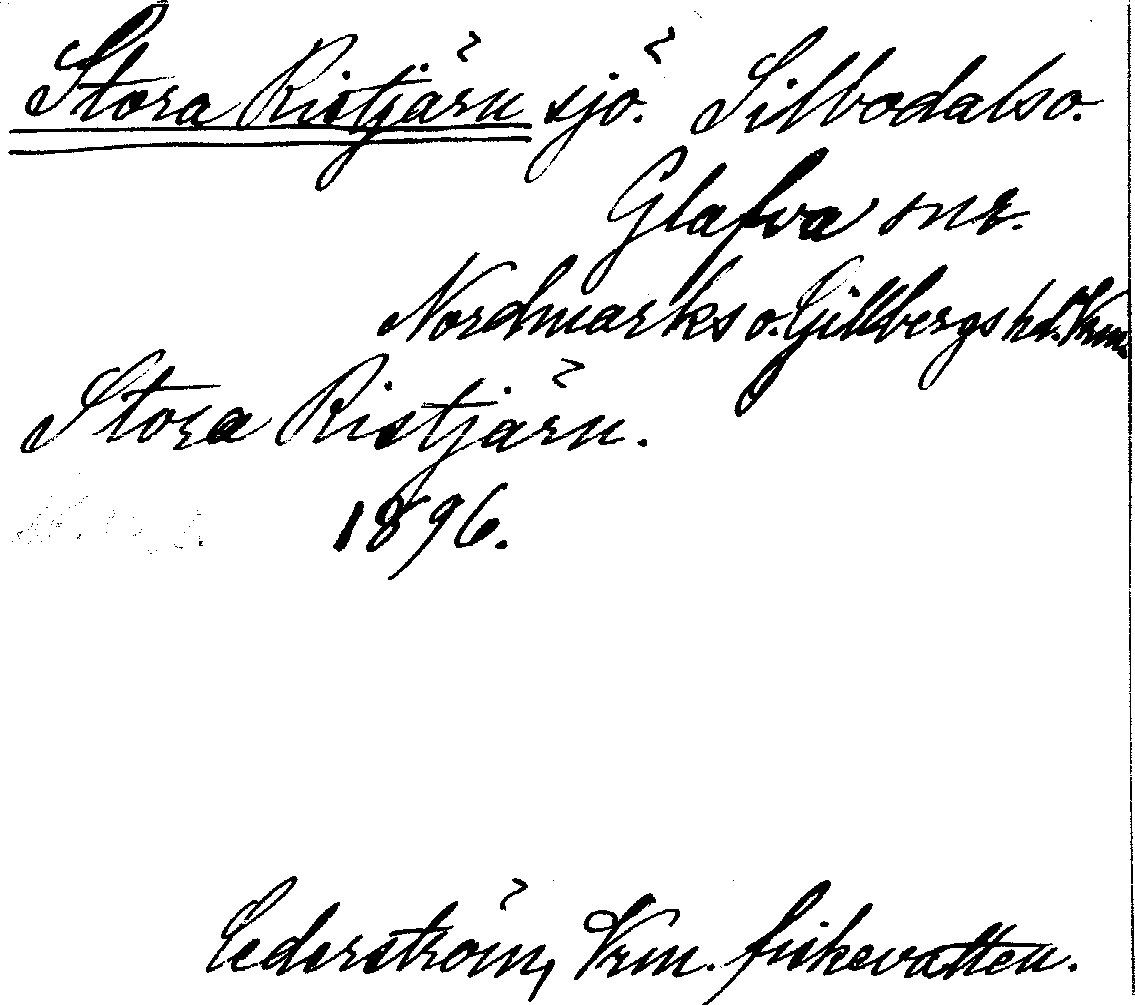 Stora Ristjärn sjö. Silbodals o.
Glafva snr.
Nordmarks o. Gillbergs hd. Vrm.
Stora Ristjärn.
1896.
Cederström, Vrm. fiskevatten.